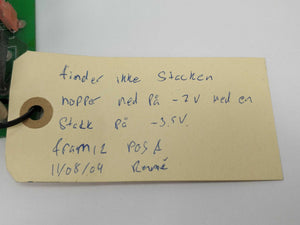 finder ikke stacken
hopper ned på -2V ved en
stakk på -3.5V.
fram12 POS A
11/08/04